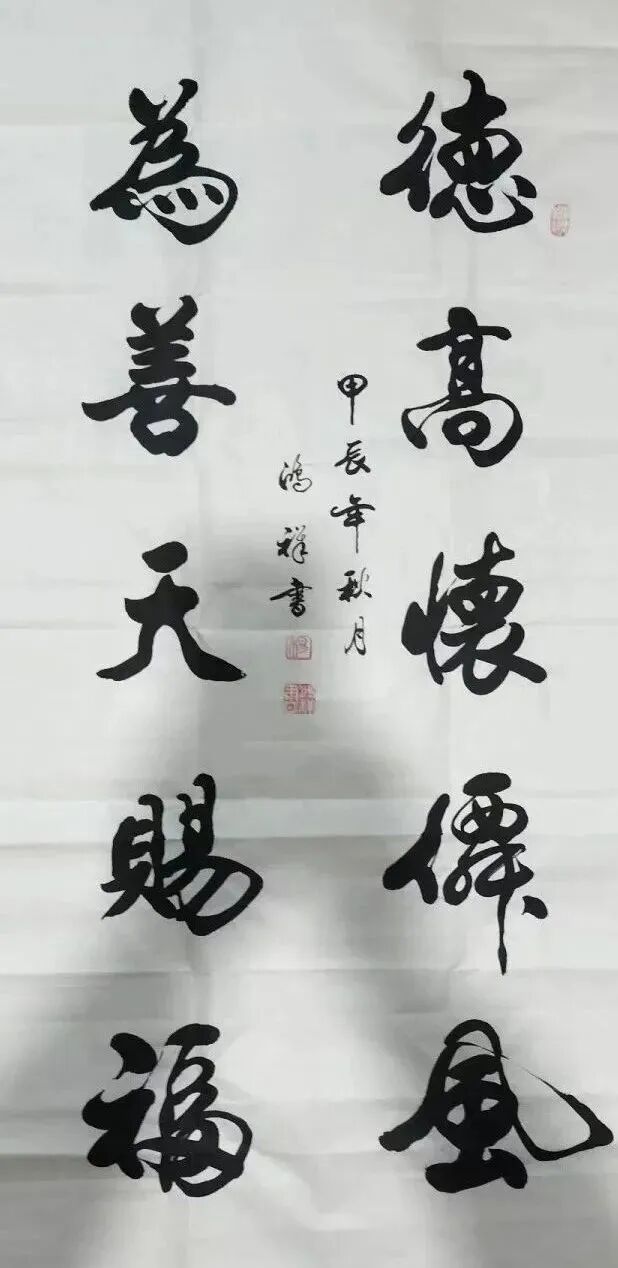 德高懷儒風
為善天賜福
甲辰年秋月
鴻祥書